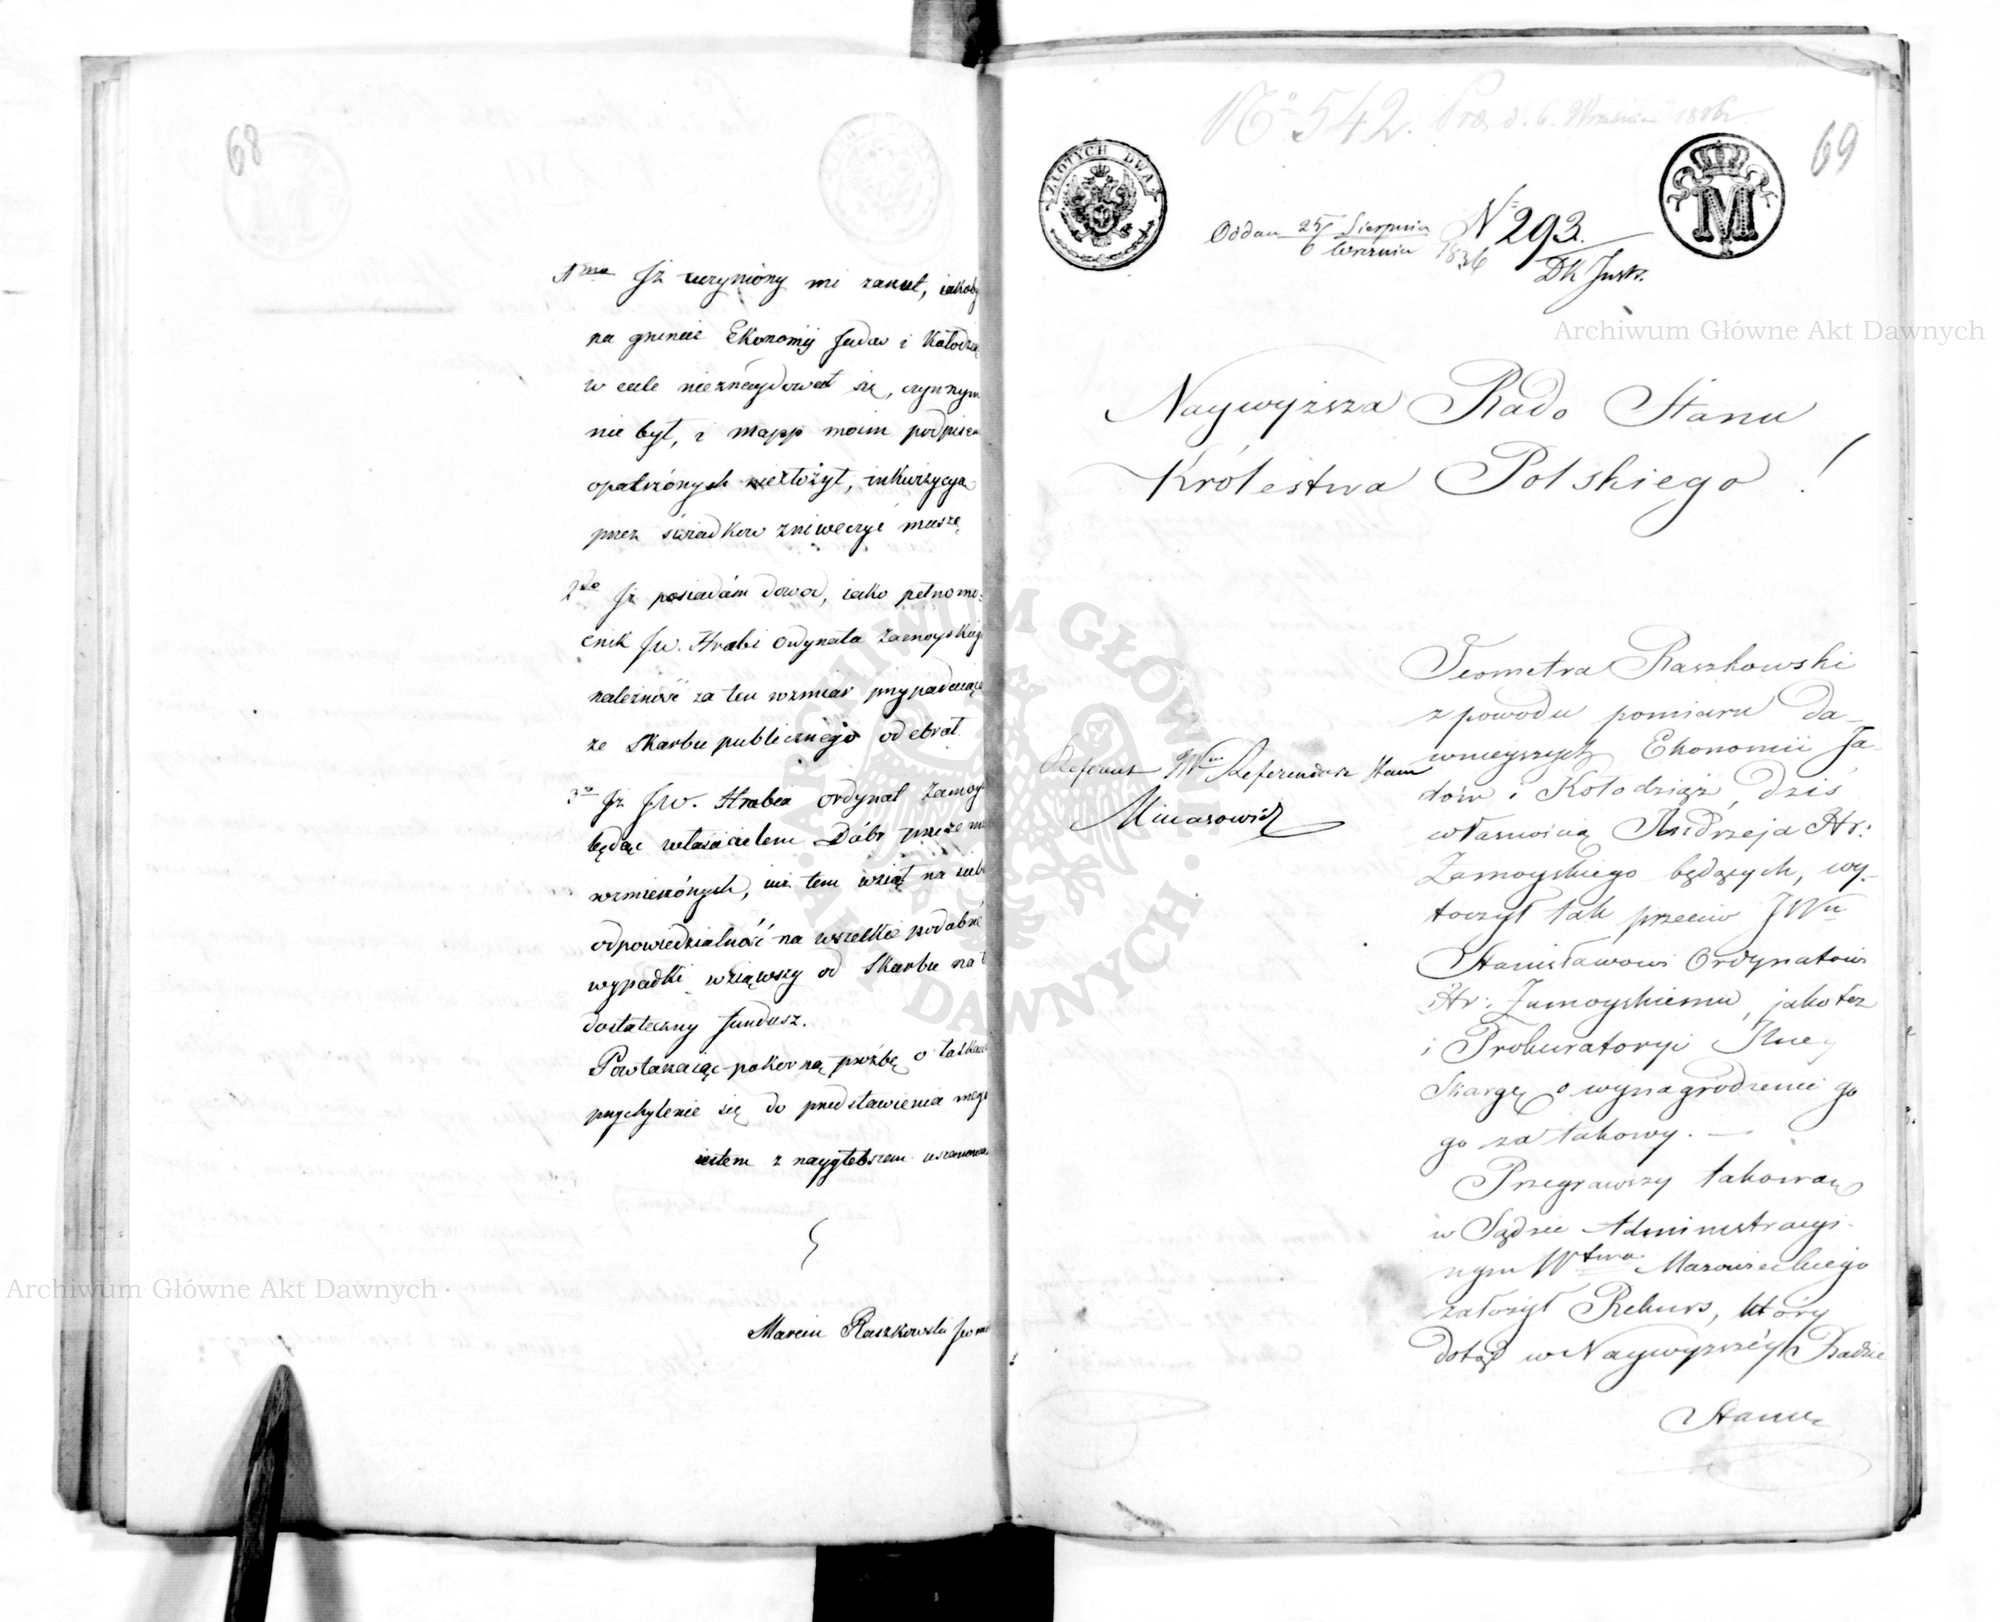 68
1mo Iż uczyniony mi zarzut, iakoby
na gruncie Ekonomij Jadow i Kołodziąż
w cale nieznaydował się, czynnym
nie był, i mapp moim podpisem
opatrzónych niezłożył, inkwizycya
przez świadkow zniweczyć muszę
2do Iż posiadám dowod, iako pełnomo-
cnik JW. Hrabi Ordynata Zamoyskiego
należność za ten rozmiar przypadaiącą
ze Skarbu publicznégo odebrał.
3o Iż JW. Hrabia Ordynat Zamoy
będąc właścicielem Dóbr przeze mnie
rozmierzónych, tem wziął na siebie
odpowiedzialność na wszelkie podobne
wypadki wziąwszy od Skarbu na to
dostateczny fundusz.
Powtarzaiąc pokorną prożbę o łaskawe
przychylenie się do przedstawienia mego
iestem z naygłębszem uszanowaniem
Marcin Raszkowski Jeom
69
No 542. Prez d. 6. Września 1836
ZŁOTYCH DWA
M
Oddan 25 Sierpnia
6 Września 1836
N 293.
DK Justr.
Naywyższa Rado Stanu
Królestwa Polskiego!
Referent Wm Referendarz Stanu
Minasowicz
Jeometra Raszkowski
z powodu pomiaru da-
wnieyszych Ekonomii Ja-
dów i Kołodziąż, dziś
własnością Andrzeja Hr:
Zamoyskiego będących, wy-
toczył tak przeciw JWu
Stanisławowi Ordynatowi
Hr: Zamoyskiemu, jako też
i Prokuratoryi
Skargę o wynagrodzenie go
go za takowy. —
Przegrawszy takową
w Sądzie Administracyi-
nym Wtwa Mazowieckiego
założył Rekurs, który
dotąd w Naywyższéy Radzie
Stanu
Archiwum Główne Akt Dawnych
Archiwum Główne Akt Dawnych
ARCHIWUM GŁÓWNE AKT DAWNYCH